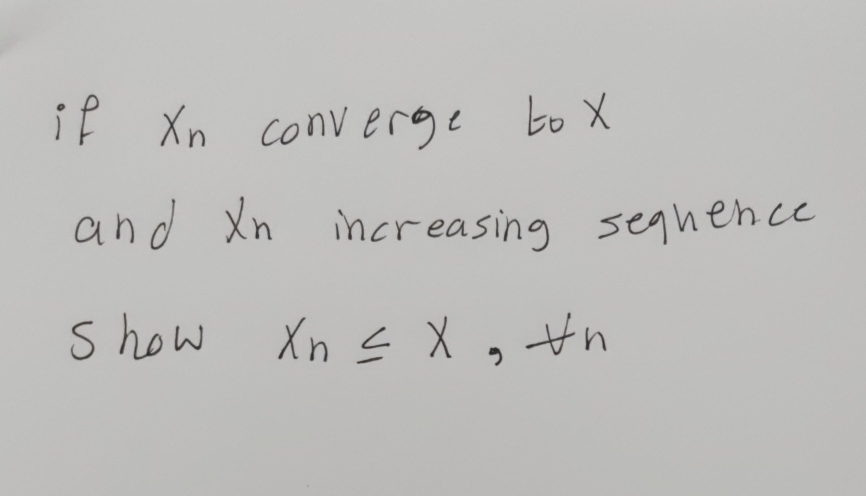 if Xn converge to X
and Xn increasing sequence
show Xn ≤ X , ∀n